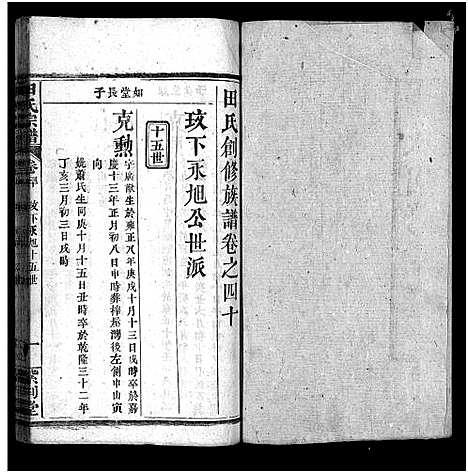 田氏創修族譜卷之四十
玫下永旭公世派
十五世
如堂長子
克勲
字廣猷生於雍正八年庚戌十月十三日戌時卒於嘉
慶十三年正月初八日申時葬檡屋灣後左側申山寅
向
娶蕭氏生同庚十月十五日丑時卒於乾隆三十二年
丁亥三月初三日戌時
田氏宗譜
卷四十
玫下永旭十五世
紫荆堂